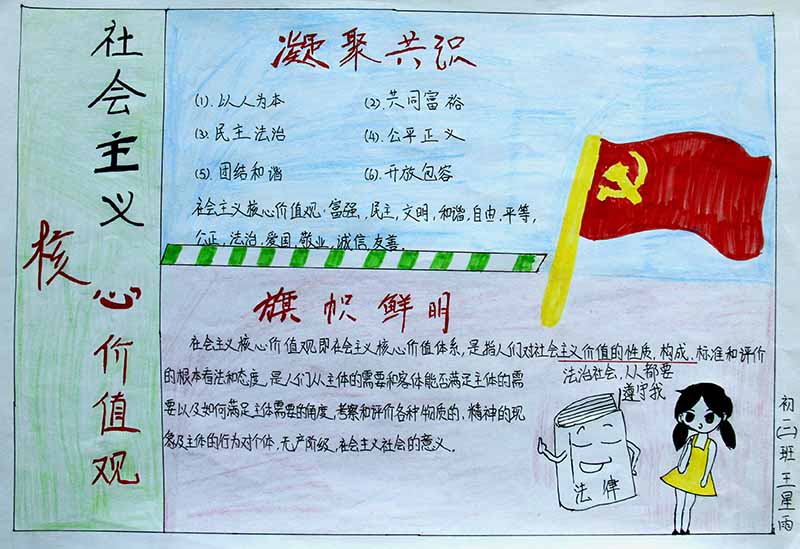 社会主义
核心价值观
凝聚共识
(1).以人为本 (2).共同富裕
(3).民主法治 (4).公平正义
(5).团结和谐 (6).开放包容
社会主义核心价值观:富强,民主,文明,和谐,自由.平等,
公正,法治,爱国,敬业,诚信,友善。
旗帜鲜明
社会主义核心价值观即社会主义核心价值体系,是指人们对社会主义价值的性质,构成,标准和评价
的根本看法和态度,是人们从主体的需要和客体能否满足主体的需
要以及如何满足主体需要的角度,考察和评价各种物质的,精神的现
象及主体的行为对个体,无产阶级,社会主义社会的意义。
法治社会,人人都要
遵守我
法律
初二(二)班 王星雨